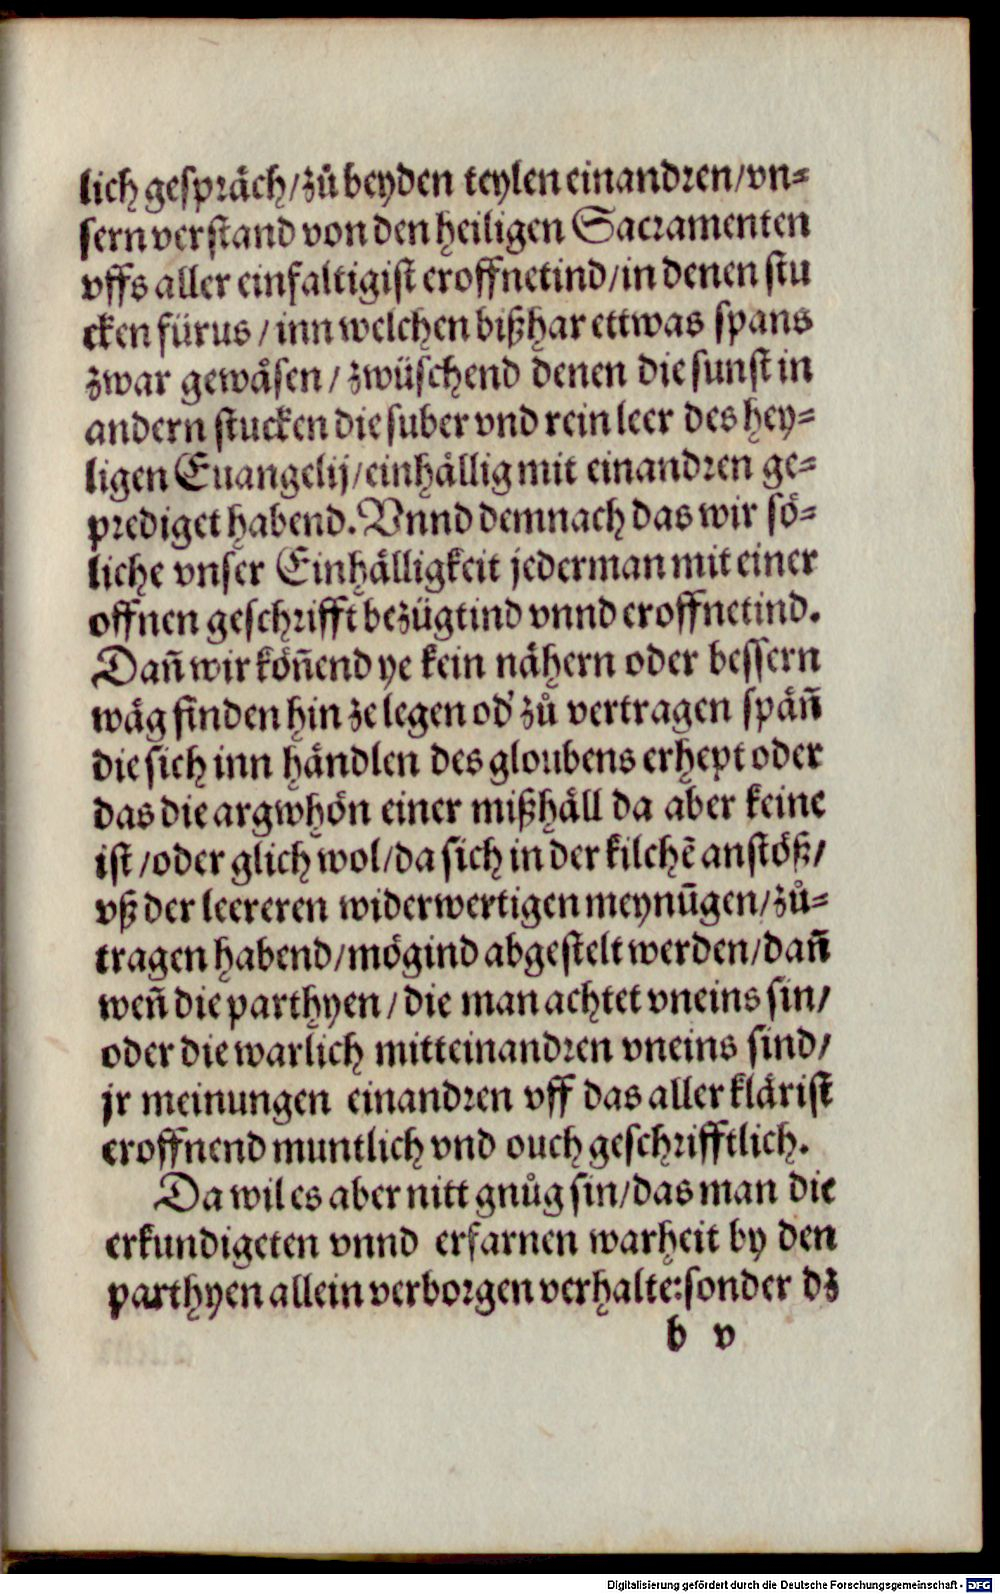 lich gespräch/zů beyden teylen einandren/vn-
sern verstand von den heiligen Sacramenten
vffs aller einfaltigist eroffnetind/in denen stu
cken fürus/inn welchen bißhar ettwas spans
zwar gewäsen/zwüschend denen die sunst in
andern stucken die suber vnd rein leer des hey-
ligen Euangelij/einhällig mit einandren ge-
prediget habend. Vnnd demnach das wir sö-
liche vnser Einhälligkeit jederman mit einer
offnen geschrifft bezügtind vnnd eroffnetind.
Dañ wir köñend ye kein nähern oder bessern
wäg finden hin ze legen od' zů vertragen späñ
die sich inn händlen des gloubens erhept oder
das die argwhön einer mißhäll da aber keine
ist/oder glich wol/da sich in der kilchẽ anstöß/
vß der leereren widerwertigen meynũgen/zů-
tragen habend/mögind abgestelt werden/dañ
weñ die parthyen/die man achtet vneins sin/
oder die warlich mitteinandren vneins sind/
jr meinungen einandren vff das aller klärist
eroffnend muntlich vnd ouch geschrifftlich.
Da wil es aber nitt gnůg sin/das man die
erkundigeten vnnd erfarnen warheit by den
parthyen allein verborgen verhalte:sonder dz
b v
Digitalisierung gefördert durch die Deutsche Forschungsgemeinschaft - DFG